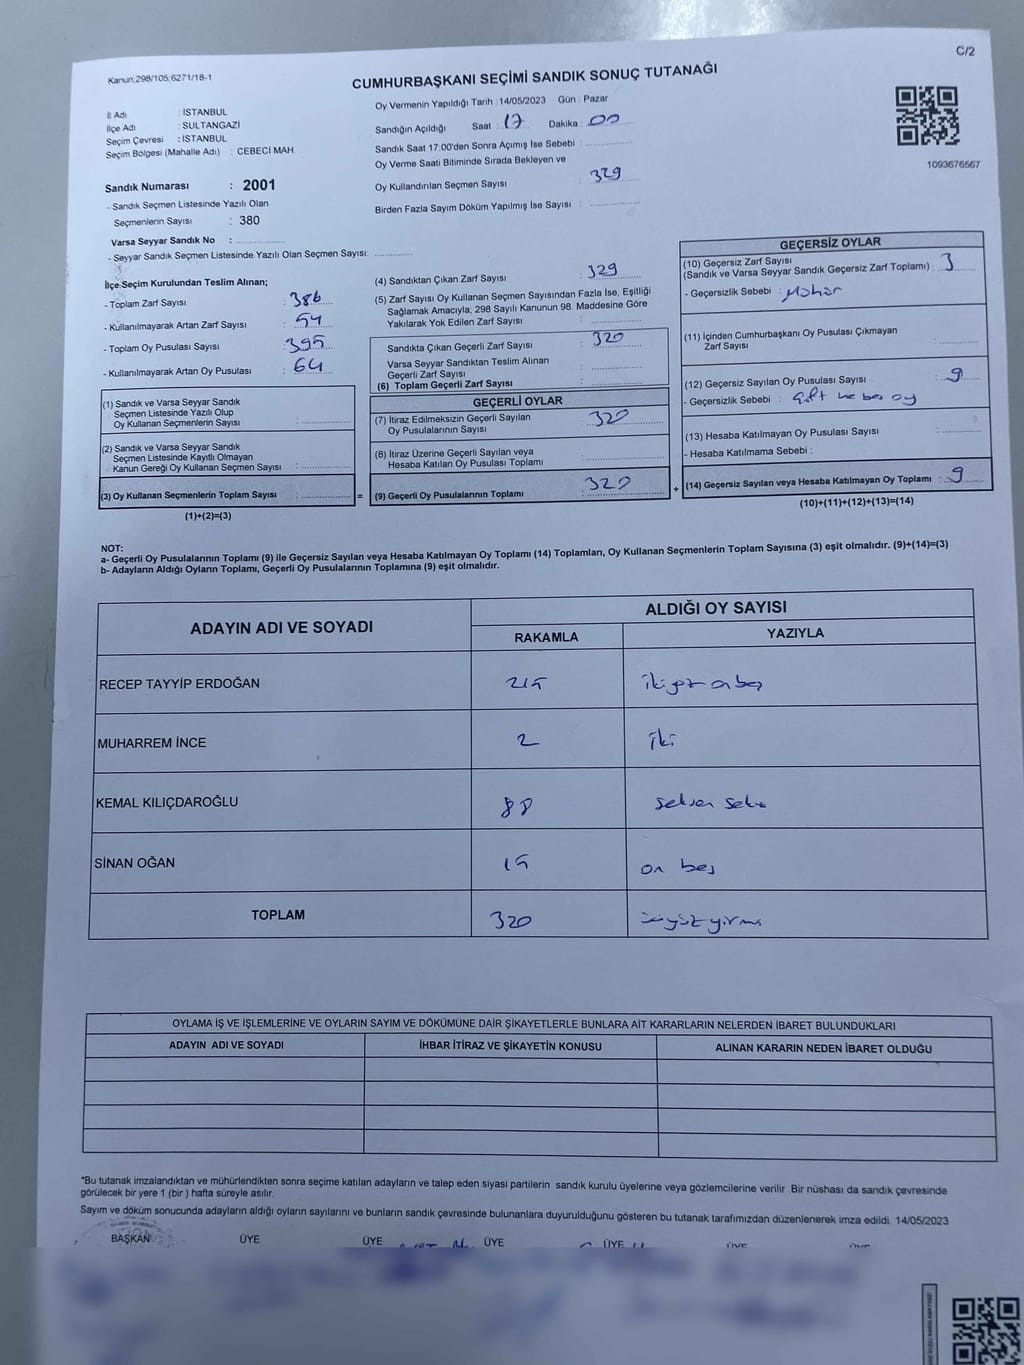 C/2
Kanun:298/105;6271/18-1
CUMHURBAŞKANI SEÇİMİ SANDIK SONUÇ TUTANAĞI
İl Adı : İSTANBUL
İlçe Adı : SULTANGAZİ
Seçim Çevresi : İSTANBUL
Seçim Bölgesi (Mahalle Adı) : CEBECİ MAH.
Sandık Numarası : 2001
- Sandık Seçmen Listesinde Yazılı Olan
Seçmenlerin Sayısı : 380
Varsa Seyyar Sandık No :
- Seyyar Sandık Seçmen Listesinde Yazılı Olan Seçmen Sayısı:
Oy Vermenin Yapıldığı Tarih : 14/05/2023 Gün : Pazar
Sandığın Açıldığı Saat : 17 Dakika : 00
Sandık Saat 17:00'den Sonra Açımış İse Sebebi :
Oy Verme Saati Bitiminde Sırada Bekleyen ve
Oy Kullandırılan Seçmen Sayısı : 329
Birden Fazla Sayım Döküm Yapılmış İse Sayısı :
1093676567
İlçe Seçim Kurulundan Teslim Alınan;
- Toplam Zarf Sayısı : 386
- Kullanılmayarak Artan Zarf Sayısı : 54
- Toplam Oy Pusulası Sayısı : 395
- Kullanılmayarak Artan Oy Pusulası : 64
(1) Sandık ve Varsa Seyyar Sandık
Seçmen Listesinde Yazılı Olup
Oy Kullanan Seçmenlerin Sayısı :
(2) Sandık ve Varsa Seyyar Sandık
Seçmen Listesinde Kayıtlı Olmayan
Kanun Gereği Oy Kullanan Seçmen Sayısı :
(3) Oy Kullanan Seçmenlerin Toplam Sayısı : =
(1)+(2)=(3)
(4) Sandıktan Çıkan Zarf Sayısı : 329
(5) Zarf Sayısı Oy Kullanan Seçmen Sayısından Fazla İse, Eşitliği
Sağlamak Amacıyla; 298 Sayılı Kanunun 98. Maddesine Göre
Yakılarak Yok Edilen Zarf Sayısı :
Sandıkta Çıkan Geçerli Zarf Sayısı : 320
Varsa Seyyar Sandıktan Teslim Alınan
Geçerli Zarf Sayısı :
(6) Toplam Geçerli Zarf Sayısı :
GEÇERLİ OYLAR
(7) İtiraz Edilmeksizin Geçerli Sayılan
Oy Pusulalarının Sayısı : 320
(8) İtiraz Üzerine Geçerli Sayılan veya
Hesaba Katılan Oy Pusulası Toplamı :
(9) Geçerli Oy Pusulalarının Toplamı : 320 +
GEÇERSİZ OYLAR
(10) Geçersiz Zarf Sayısı
(Sandık ve Varsa Seyyar Sandık Geçersiz Zarf Toplamı) : 3
- Geçersizlik Sebebi : Mühür
(11) İçinden Cumhurbaşkanı Oy Pusulası Çıkmayan
Zarf Sayısı :
(12) Geçersiz Sayılan Oy Pusulası Sayısı : 9
- Geçersizlik Sebebi : Çift ve boş oy
(13) Hesaba Katılmayan Oy Pusulası Sayısı :
- Hesaba Katılmama Sebebi :
(14) Geçersiz Sayılan veya Hesaba Katılmayan Oy Toplamı : 9
(10)+(11)+(12)+(13)=(14)
NOT:
a- Geçerli Oy Pusulalarının Toplamı (9) ile Geçersiz Sayılan veya Hesaba Katılmayan Oy Toplamı (14) Toplamları, Oy Kullanan Seçmenlerin Toplam Sayısına (3) eşit olmalıdır. (9)+(14)=(3)
b- Adayların Aldığı Oyların Toplamı, Geçerli Oy Pusulalarının Toplamına (9) eşit olmalıdır.
ADAYIN ADI VE SOYADI
ALDIĞI OY SAYISI
RAKAMLA YAZIYLA
RECEP TAYYİP ERDOĞAN 215 iki yüz on beş
MUHARREM İNCE 2 iki
KEMAL KILIÇDAROĞLU 88 seksen sekiz
SİNAN OĞAN 15 on beş
TOPLAM 320 üçyüz yirmi
OYLAMA İŞ VE İŞLEMLERİNE VE OYLARIN SAYIM VE DÖKÜMÜNE DAİR ŞİKAYETLERLE BUNLARA AİT KARARLARIN NELERDEN İBARET BULUNDUKLARI
ADAYIN ADI VE SOYADI İHBAR İTİRAZ VE ŞİKAYETİN KONUSU ALINAN KARARIN NEDEN İBARET OLDUĞU
*Bu tutanak imzalandıktan ve mühürlendikten sonra seçime katılan adayların ve talep eden siyasi partilerin sandık kurulu üyelerine veya gözlemcilerine verilir .Bir nüshası da sandık çevresinde
görülecek bir yere 1 (bir ) hafta süreyle asılır.
Sayım ve döküm sonucunda adayların aldığı oyların sayılarını ve bunların sandık çevresinde bulunanlara duyurulduğunu gösteren bu tutanak tarafımızdan düzenlenerek imza edildi. 14/05/2023
BAŞKAN ÜYE ÜYE ÜYE ÜYE ÜYE ÜYE